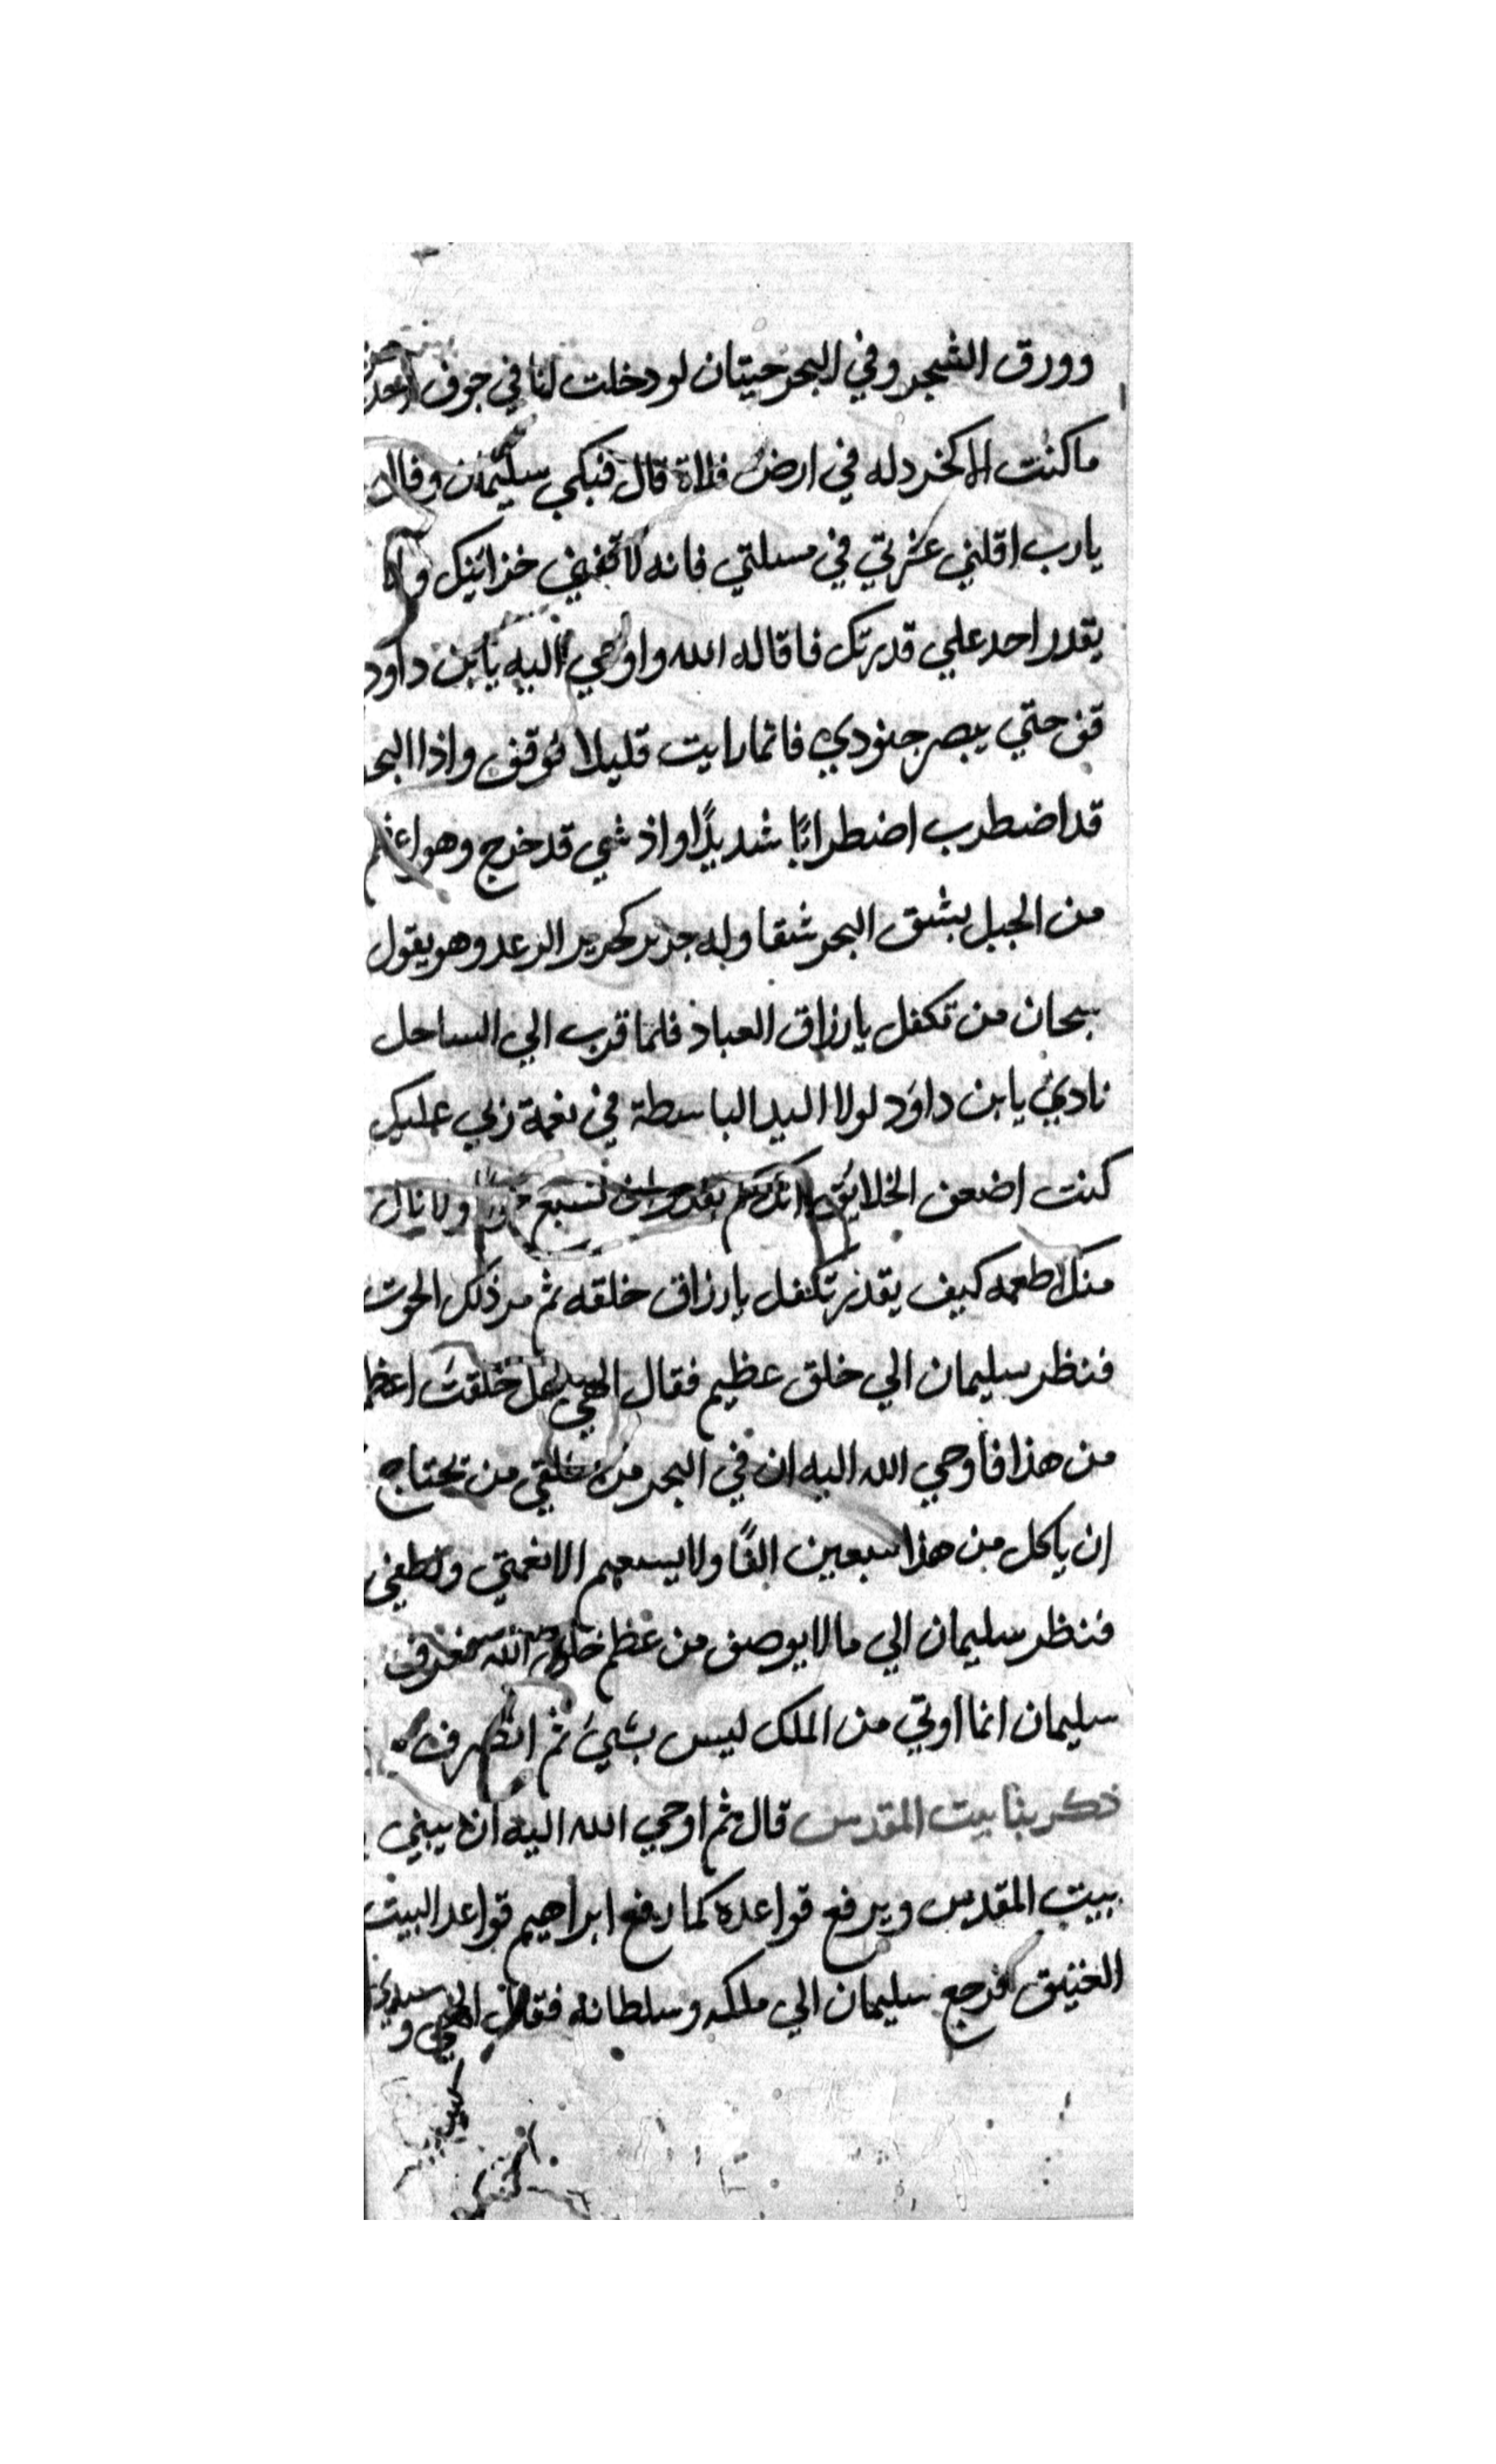 وورق الشجر وفي البحر حيتان لو دخلت انا في جوف احد
ما كنت الا كخردله في ارض فلاة قال فبكي سليمان وقال
يارب اقلني عثرتي في مسلتي فانه لا تفني خزائنك ولا
يقدر احد علي قدرتك فاقاله الله واوحي اليه يا بن داود
قف حتي يبصر جنودي فانما رايت قليلا فوقف واذا البحر
قد اضطرب اضطرابًا شديدًا واذ شي قد خرج وهو اعظم
من الجبل يشق البحر شقا وله جرير كجرير الرعد وهو يقول
سبحان من تكفل يارزاق العباد فلما قرب الي الساحل
نادي يا بن داود لولا اليد الباسطة في نعمة ربي عليك
كنت اضعف الخلايق ولا ينال
منك طعمه كيف يقدر تكفل يارزاق خلقه ثم مر ذلك الحوت
فنظر سليمان الي خلق عظيم فقال الهي هل خلقت اعظم
من هذا فاوحي الله اليه ان في البحر من خلقي من يحتاج
ان ياكل من هذا سبعين الفًا ولا يسعهم الا نعمتي ولطفي
فنظر سليمان الي ما لا يوصف من عظم خلق الله فعرف
سليمان انما اوتي من الملك ليس بشيء ثم انصرف
ذكر بنا بيت المقدس قال ثم اوحي الله اليه ان يبني
بيت المقدس ويرفع قواعده كما رفع ابراهيم قواعد البيت
العتيق فرجع سليمان الي ملكه وسلطانه فقال الهي وسيدي